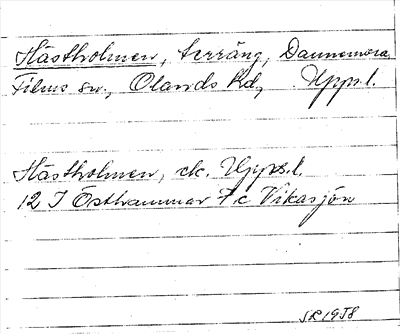 Hästholmen, terräng, Dannemora,
Films sn., Olands hd., Upps.l.
Hästholmen, ek. Upps.l.
12 I Östhammar 7 c Vikasjön
SL 1958